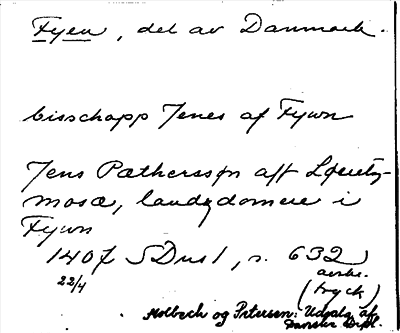 Fyen, del av Danmark.
bisschopp Jenes af Fywn
Jens Pætherssøn aff Løvetz-
mosæ, landzdomere i
Fywn
1407 SDns 1, s. 632
22/4 avskr.
(tryck)
Molbech og Petersen: Udvalg af
Danske Dipl.